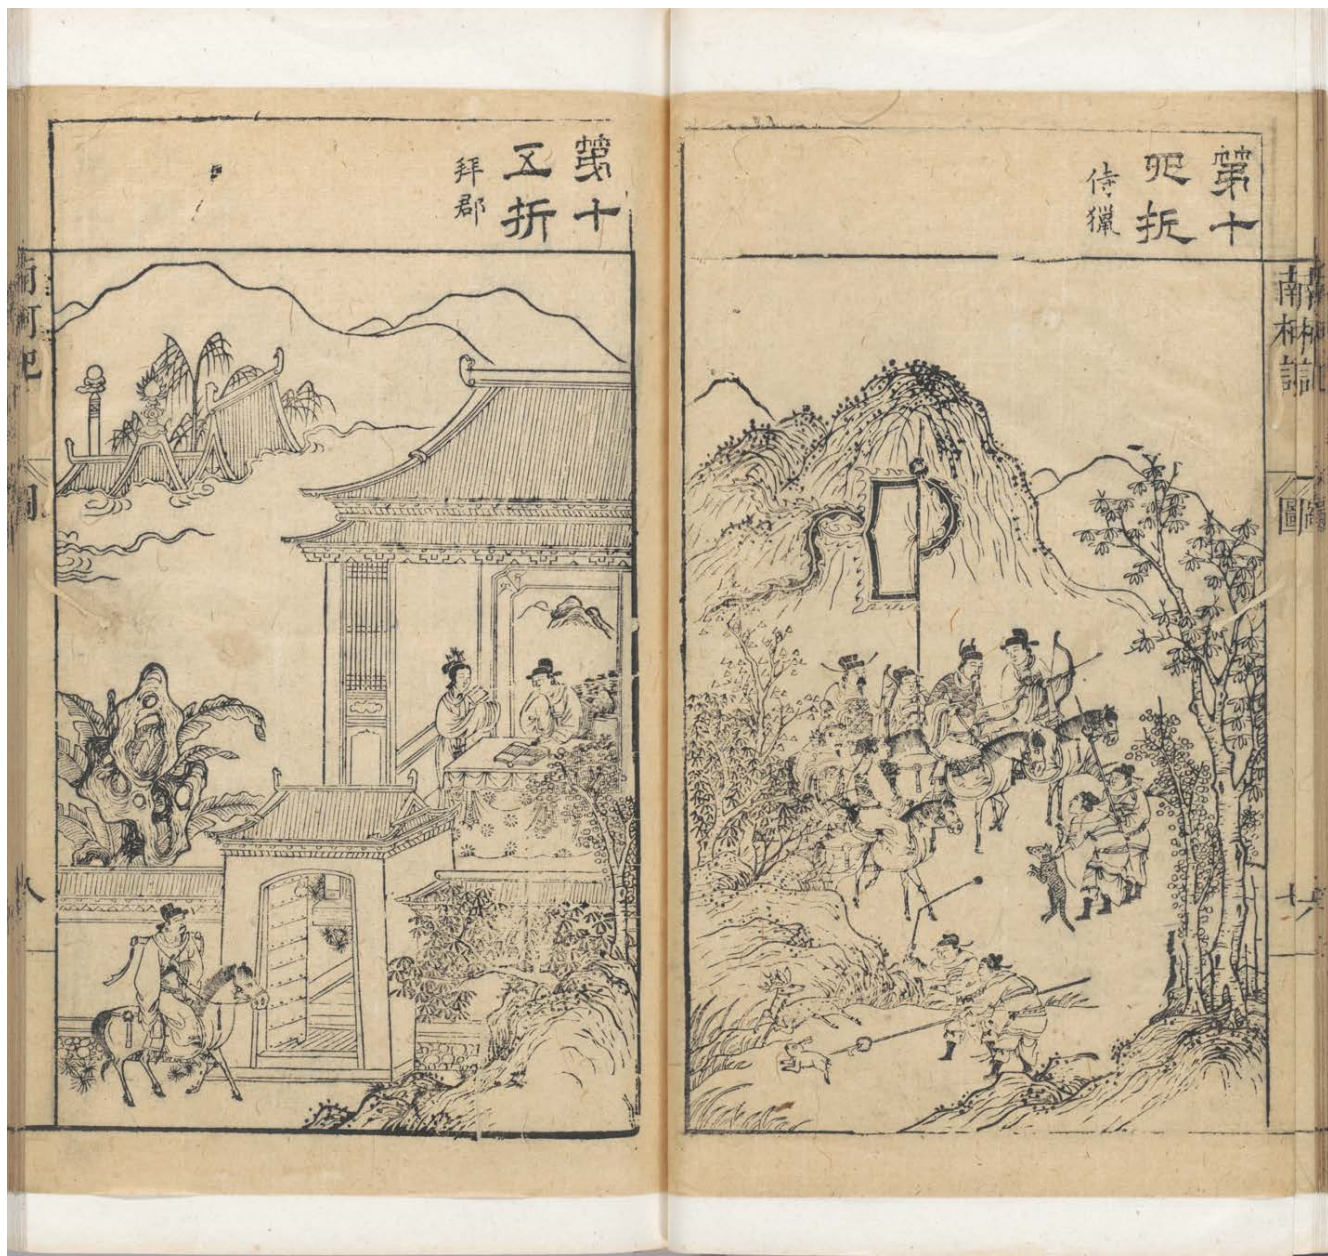 第十
四折
侍獵
南柯記
圖
第十
五折
拜郡
南柯記
圖
八